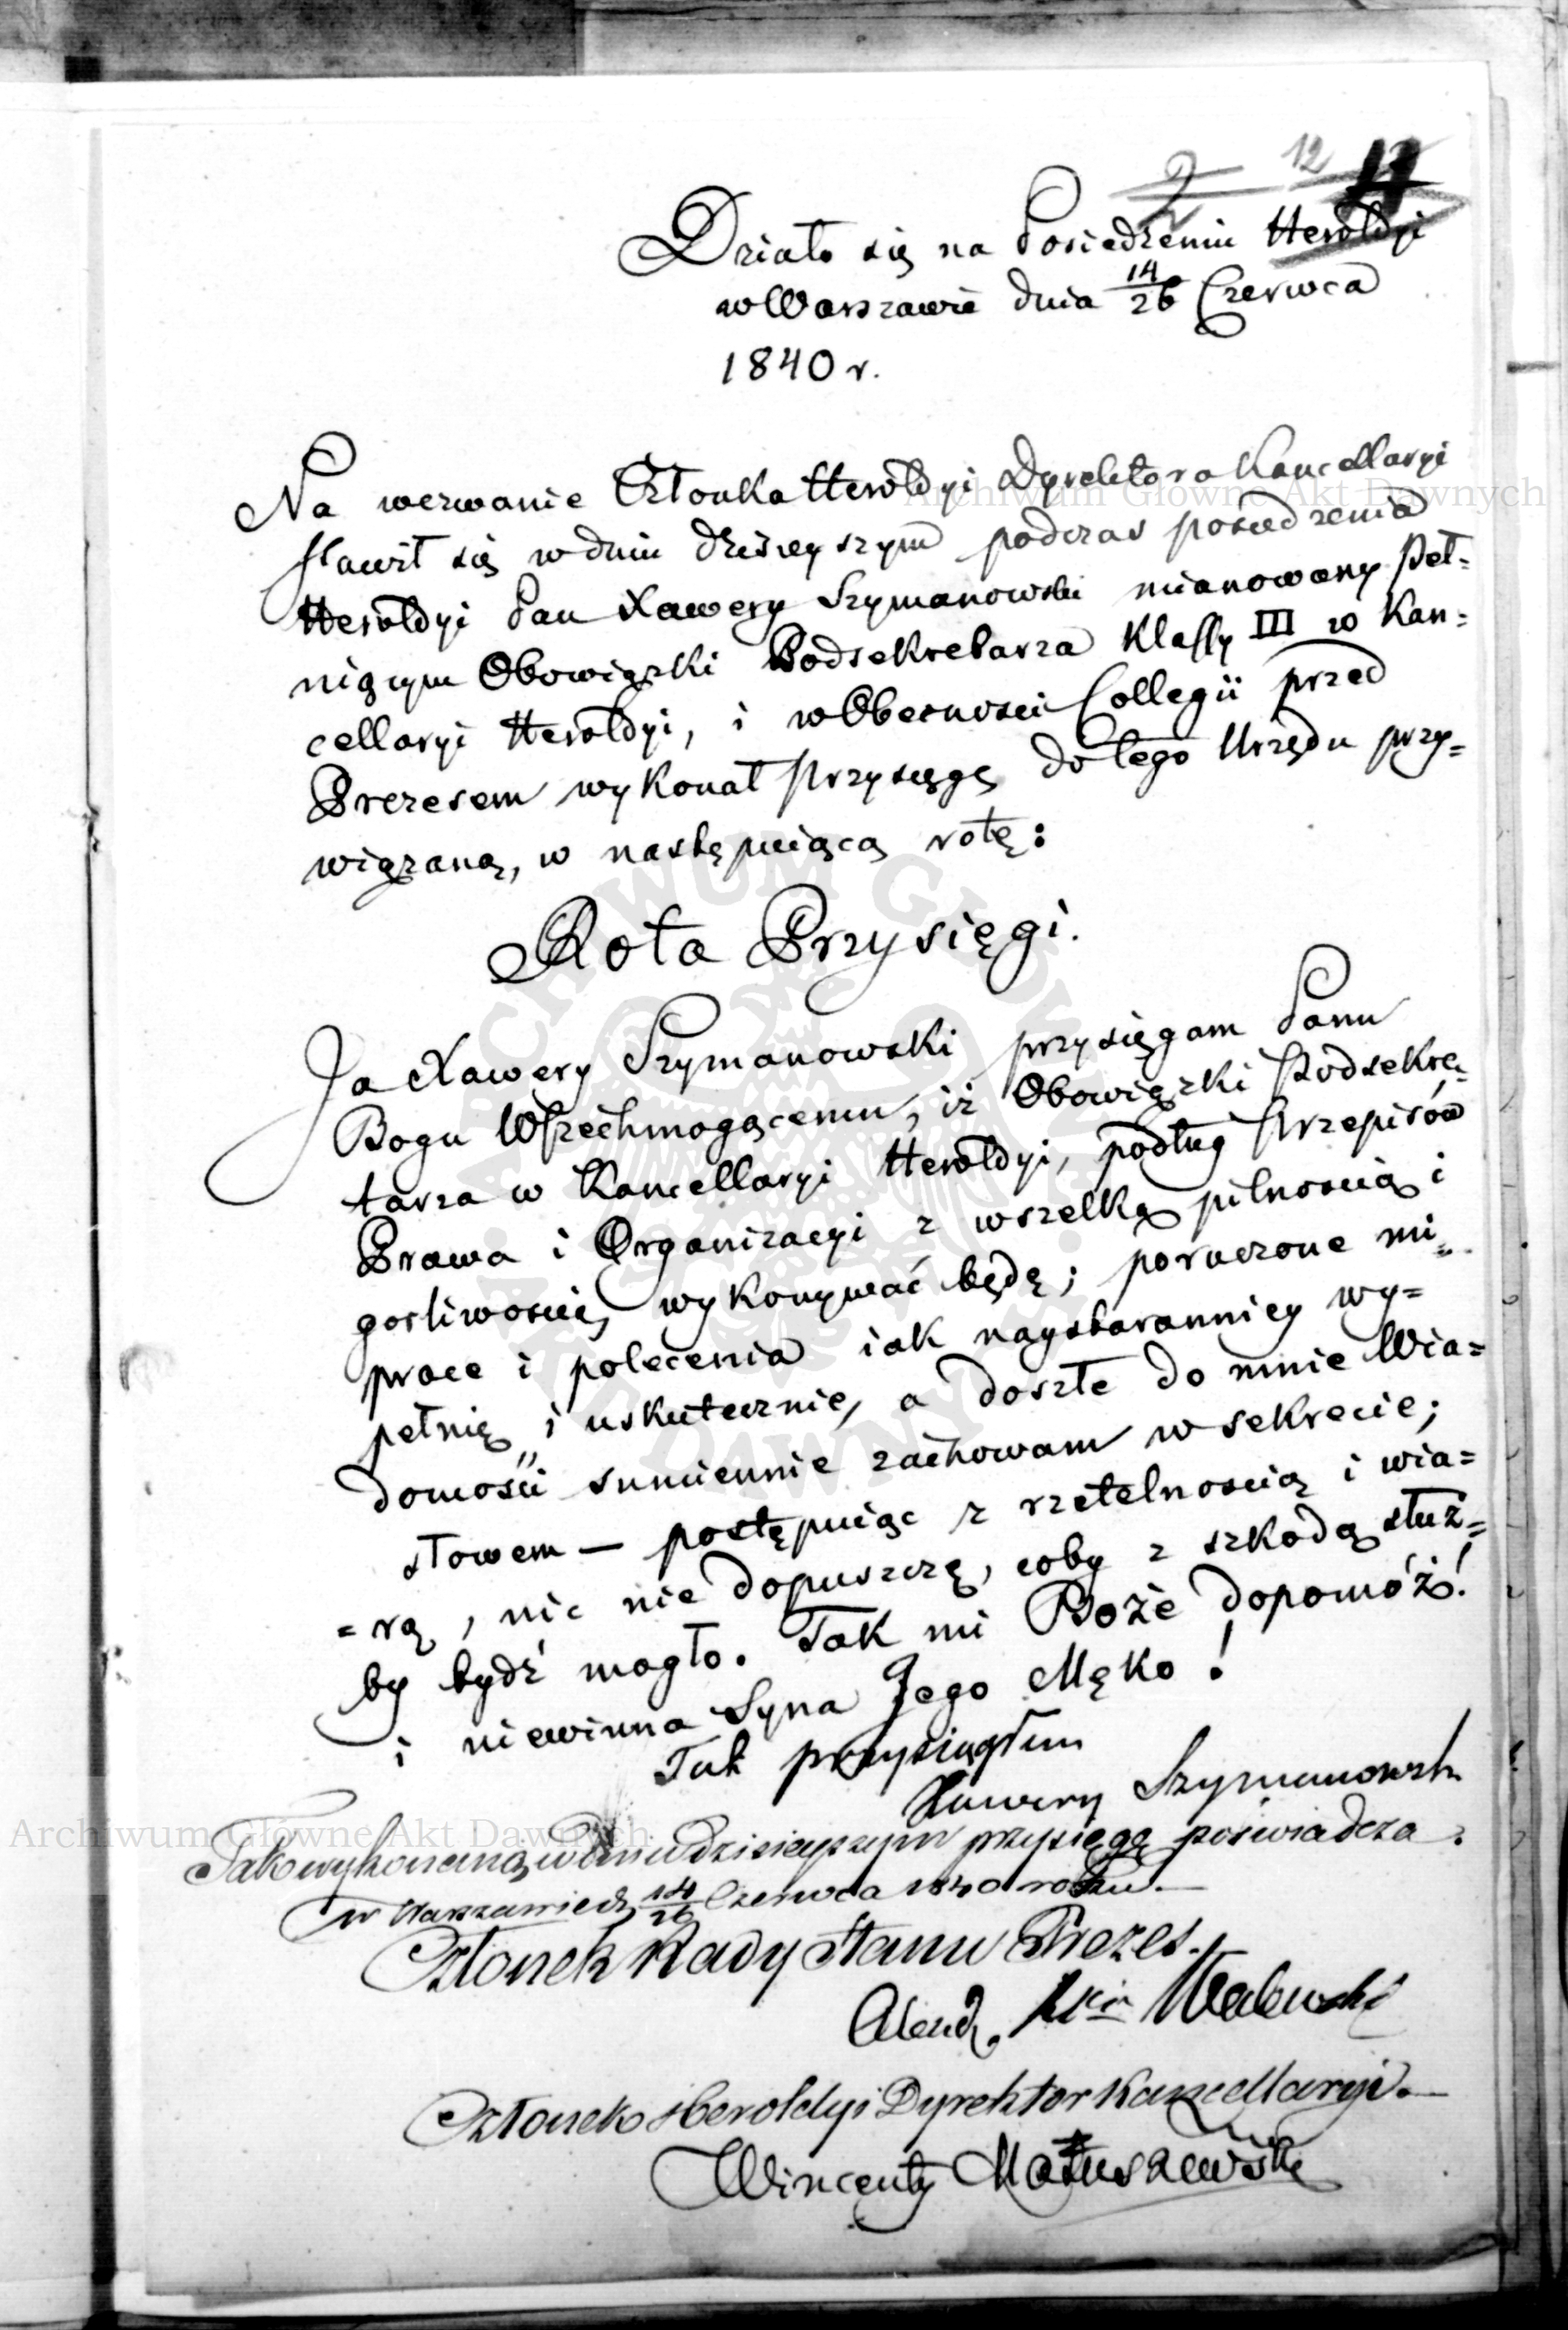 2 12 11
Działo się na Posiedzeniu Heroldyi
w Warszawie dnia 14/26 Czerwca
1840 r.
Na wezwanie Członka Heroldyi Dyrektora Kancellaryi
stawił się w dniu dzisieyszym podczas posiedzenia
Heroldyi Pan Xawery Szymanowski mianowany Peł=
niącym Obowiązki Podsekretarza Klassy III w Kan=
cellaryi Heroldyi, i w Obecności Collegii przed
Prezesem wykonał Przysięgę do tego Urzędu przy=
wiązaną, w następuiącą rotę:
Rota Przysięgi.
Ja Xawery Szymanowski przysięgam Panu
Bogu Wszechmogącemu, iż Obowiązki Podsekre=
tarza w Kancellaryi Heroldyi, podług Przepisów
Prawa i Organizacyi z wszelką pilnością i
gorliwością wykonywać będę; poruczone mi
prace i polecenia iak naystaranniey wy=
pełnię i uskutecznię, a doszłe do mnie Wia=
domości sumiennie zachowam w sekrecie;
słowem — postępuiąc z rzetelnością i wia=
=rą, nic nie dopuszczę, coby z szkodą służ=
by bydź mogło. Tak mi Boże dopomóż!
i niewinna Syna Jego Męko!
Tak przysiągłem
Xawery Szymanowski
Jako wykonaną w dniu dzisieyszym przysięgę poświadcza
w Warszawie d. 14/26 Czerwca 1840 roku.—
Członek Rady Stanu Prezes.
Alexd. Walewski
Członek Heroldyi Dyrektor Kancellaryi.—
Wincenty Matuszewski
Archiwum Główne Akt Dawnych
Archiwum Główne Akt Dawnych
ARCHIWUM GŁÓWNE AKT DAWNYCH